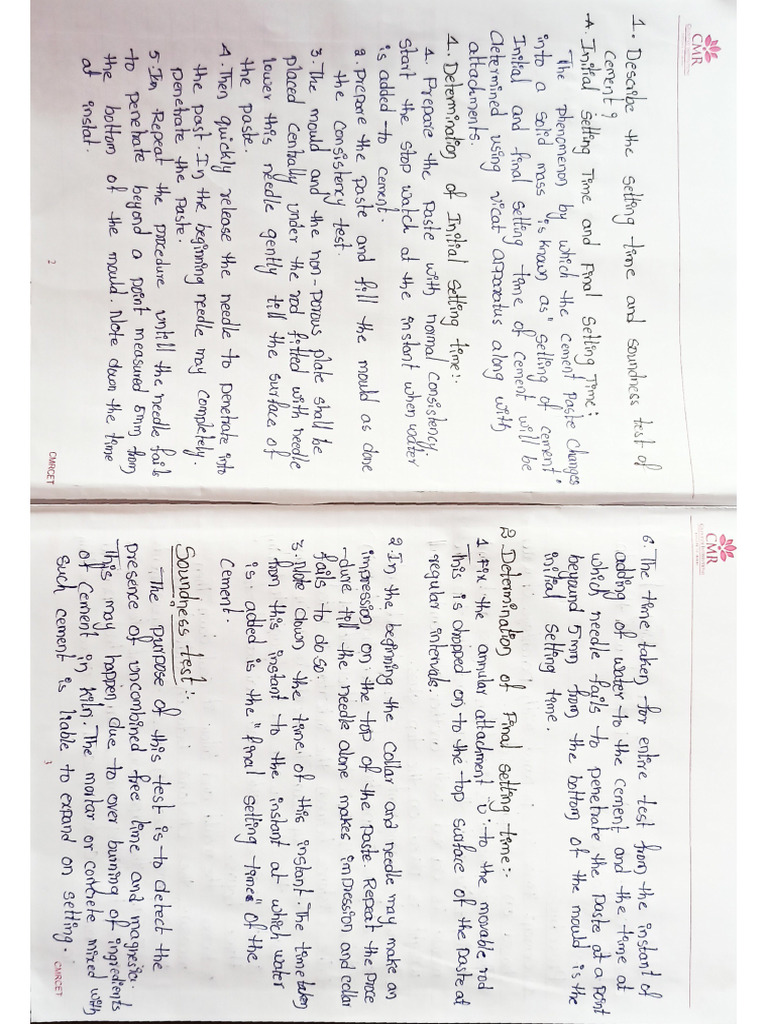 CMR
1. Describe the setting time and soundness test of
cement?
A. Initial setting Time and Final Setting Time:
The phenomenon by which the cement paste changes
into a solid mass is known as "setting of cement"
Initial and final setting time of cement will be
determined using vicat apparatus along with
attachments.
1. Determination of Initial setting time:-
1. Prepare the paste with normal consistency.
Start the stop watch at the instant when water
is added to cement.
2. Prepare the paste and fill the mould as done
the consistency test.
3. The mould and the non-porous plate shall be
placed centrally under the rod fitted with needle
lower this needle gently till the surface of
the paste.
4. Then quickly release the needle to penetrate into
the past. In the beginning needle may completely.
penetrate the paste.
5. In Repeat the procedure untill the needle fails
to penetrate beyond a point measured 5mm from
the bottom of the mould. Note down the time
at instat.
2
CMRCET
CMR
6. The time taken for entire test from the instant of
adding of water to the cement and the time at
which needle fails to penetrate the paste at a point
beyound 5mm from the bottom of the mould is the
initial setting time.
2. Determination of Final setting time:-
1. Fix the annular attachment to the movable rod
This is dropped on to the top surface of the paste at
regular intervals.
2. In the beginning the collar and needle may make an
impression on the top of the paste. Repeat the proce
-dure till the needle alone makes impression and collar
fails to do so.
3. Note down the time of this instant. The time taken
from this instant to the instant at which water
is added is the "final setting time" of the
cement.
Soundness test:-
The purpose of this test is to detect the
presence of uncombined free lime and magnesia.
This may happen due to over burning of ingredients
of cement in kiln. The mortar or concrete mixed with
such cement is liable to expand on setting.
3
CMRCET